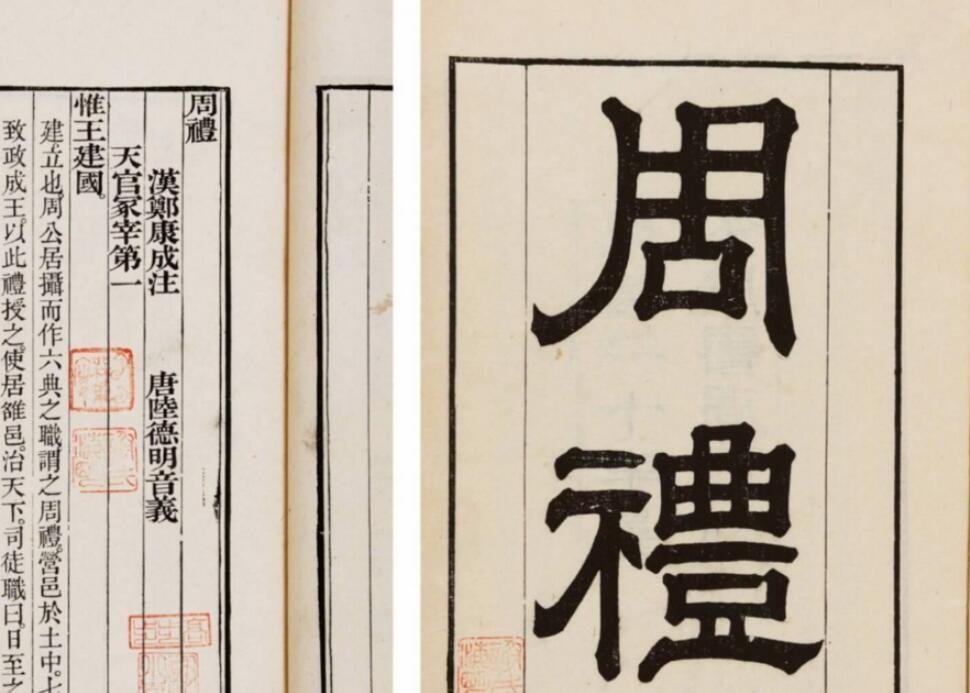 周禮
周禮
漢鄭康成注 唐陸德明音義
天官冢宰第一
惟王建國。
建。立也。周公居攝而作六典之職。謂之周禮。營邑於土中。七
致政成王。以此禮授之。使居雒邑。治天下。司徒職曰。日至之